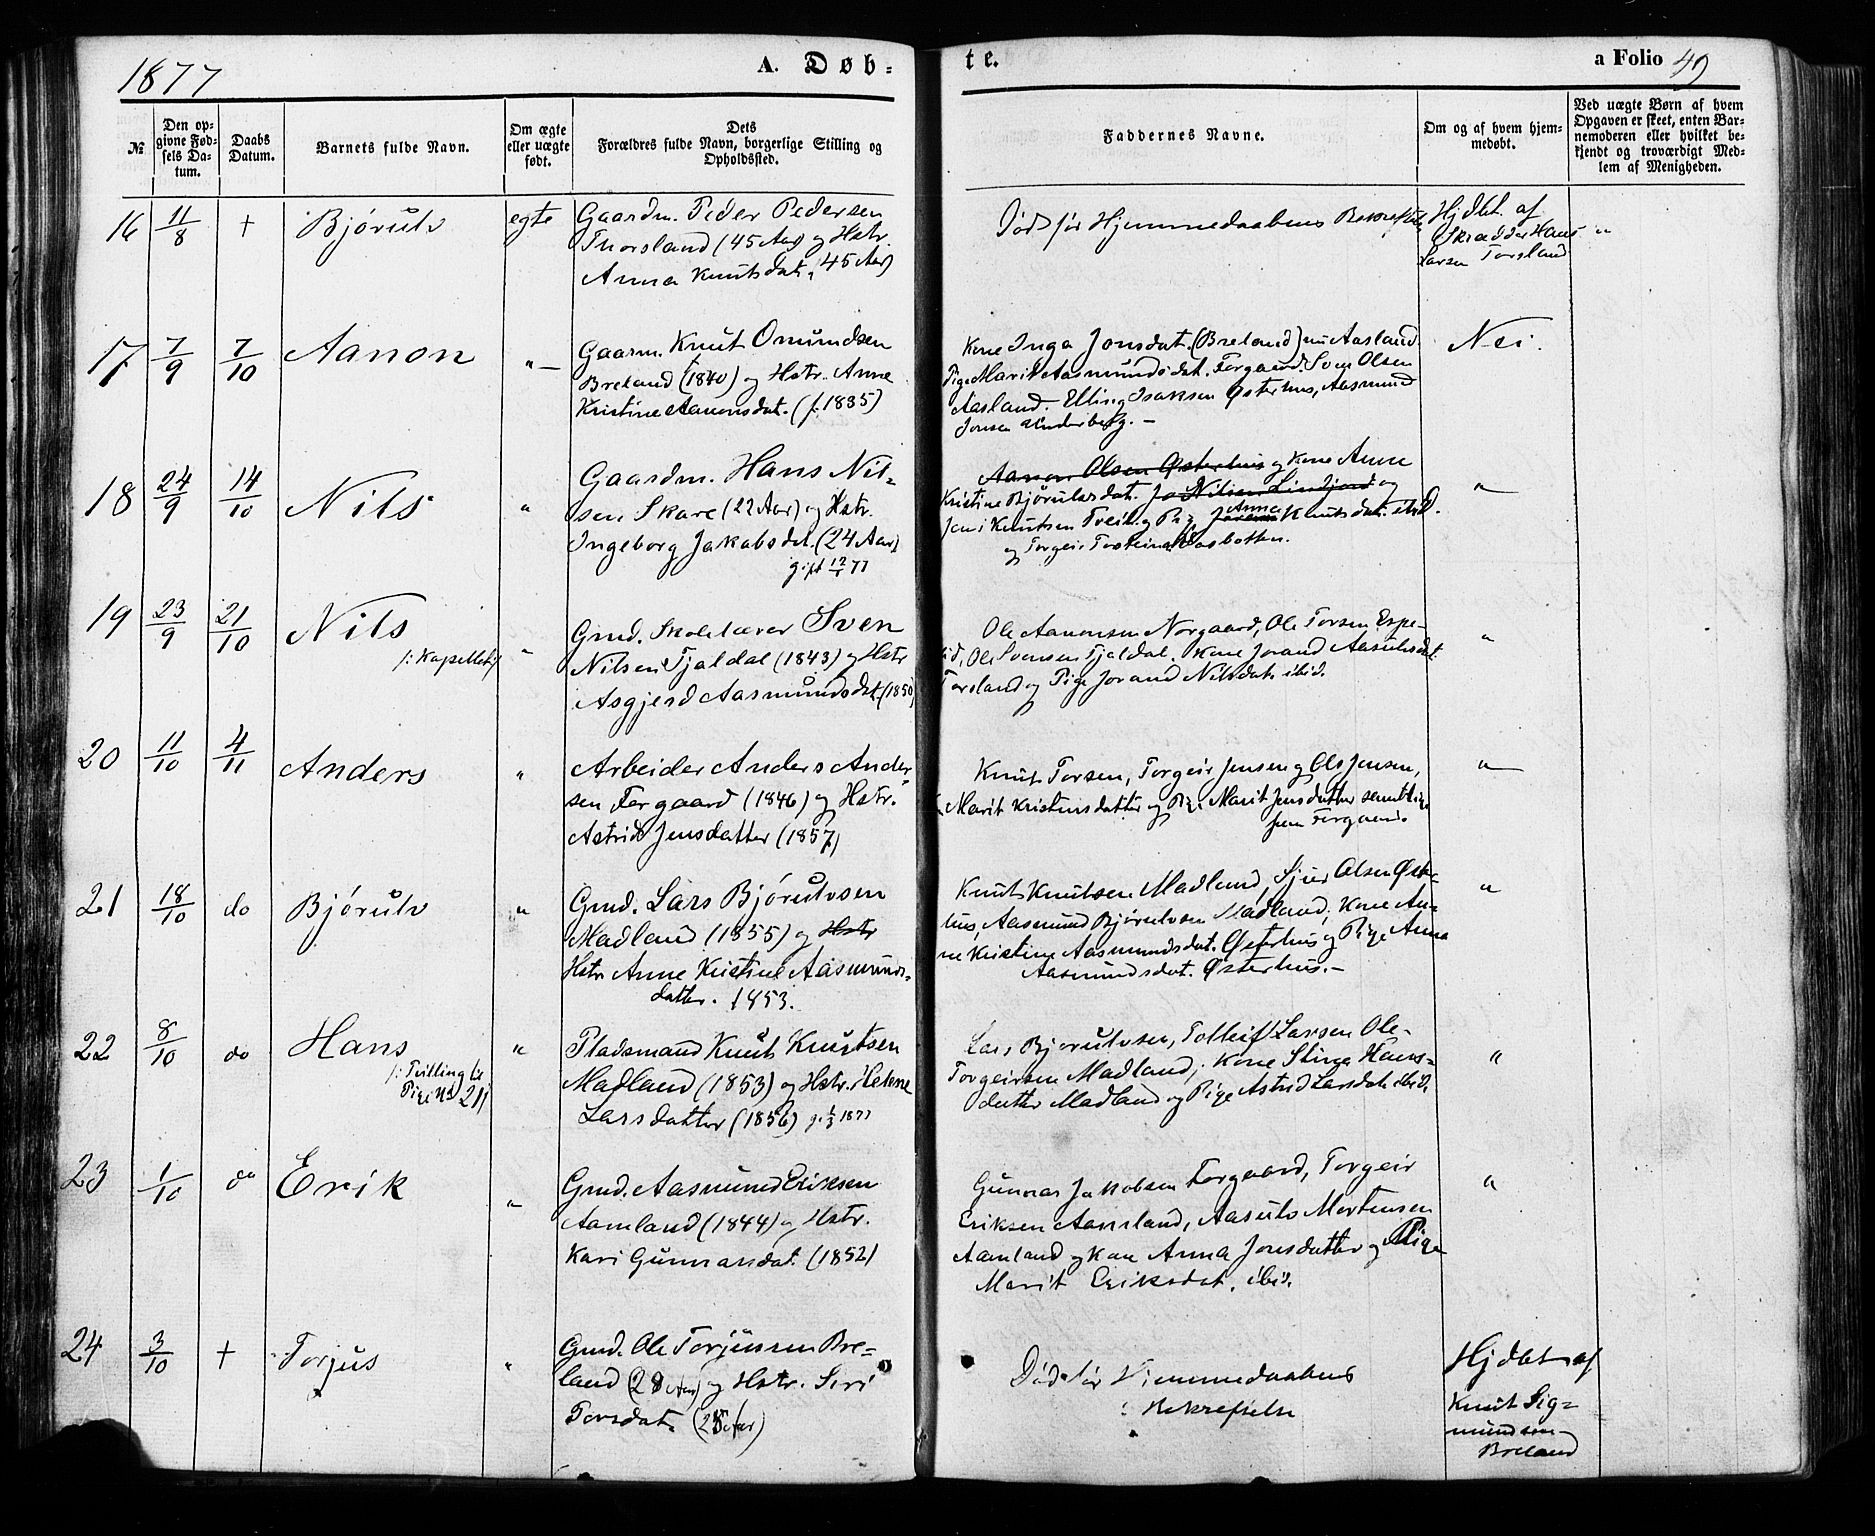 1877
A. Døb-
te.
a Folio 49
№
Den op-
givne Fød-
sels Da-
tum.
Daabs
Datum.
Barnets fulde Navn.
Om ægte
eller uægte
født.
Dets
Forældres fulde Navn, borgerlige Stilling og
Opholdssted.
Faddernes Navne.
Om og af hvem hjem-
medøbt.
Ved uægte Børn af hvem
Opgaven er skeet, enten Bar-
nemoderen eller hvilket be-
kjendt og troværdigt Med-
lem af Menigheden.
16 11/8 + Bjørulv egte
Gaardm. Peder Pedersen
Thorsland (45 Aar) og Hstr.
Anna Knutsdat. 45 Aar)
Død før Hjemmedaabens Bekræftelse
Hjdbt. af
Skrædder Hans
Larsen Torsland
"
17 7/9 7/10 Aanon "
Gaarm. Knut Omundsen
Breland (1840) og Hstr. Anne
Kristine Aanonsdat. (f. 1835)
Kone Inga Jonsdat. (Breland) nu Aasland.
Pige Marit Aasmundsdat. Forgaard. Sven Olsen
Aasland. Elling Isaksen Østerhus, Aasmund
Jonsen Underberg. –
Nei.
18 24/9 14/10 Nils "
Gaardm. Hans Nil-
sen Skare (22 Aar) og Hstr.
Ingeborg Jakobsdt. (24 Aar)
gift 12/1 77
Aanon Olsen Østerhus og Kone Anne
Kristine Bjørulvsdat. Jo Nilsen Lindjord og
Jens Knutsen Treit og Pige Anna Knutsdat. ibid.
og Torgeir Torsteinsen Aasbotten.
"
19 23/9 21/10 Nils "
/: Kapellet :/
Gmd. Skolelærer Sven
Nilsen Tjaldal (1843) og Hstr
Asgjerd Aasmundsdat. (1850)
Ole Aanonsen Norgaard, Ole Torsen Espe-
lid, Ole Svensen Tjaldal. Kone Jorand Aasulvsdat.
Torsland og Pige Jorand Nilsdat. ibid.
"
20 11/10 4/11 Anders "
Arbeider Anders Ander-
sen Forgaard (1846) og Hstr.
Astrid Jensdatter (1857)
Knut Torsen, Torgeir Jensen og Ols Jensen,
Marit Kristensdatter og Pige Marit Jensdatter samtlige
paa Forgaard.
"
21 18/10 do Bjørulv "
Gmd. Lars Bjørulvsen
Madland (1855) og Hstr
Hstr Anne Kristine Aasmunds-
datter. 1853.
Knut Knutsen Madland, Sjur Olsen Øster-
hus, Aasmund Bjørulvsen Madland; Kone An-
ne Kristine Aasmundsdat. Østerhus og Pige Anna
Aasmundsdat. Østerhus. –
"
22 8/10 do Hans "
/: Tvilling til
Pige No 21 :/
Pladsmand Knut Knutsen
Madland (1853) og Hstr. Helene
Larsdatter (1856) g. 1/3 1877
Lars Bjørulvsen, Tolleif Larsen Ole-
Torgeirsen Madland; Kone Stina Hans-
datter Madland og Pige Astrid Larsdat. ibid.
"
23 1/10 do Erik "
Gmd. Aasmund Eriksen
Aamland (1844) og Hstr.
Kari Gunnarsdat. (1852)
Gunnar Jakobsen Forgaard, Torgeir
Eriksen Aamland, Aasulv Mortensen
Aamland og Kone Anna Jonsdatter og Pige
Marit Eriksdat. ibid.
"
24 3/10 + Torjus "
Gmd. Ole Torjussen Bre-
land (28 Aar) og Hstr. Siri
Torsdat. (28 Aar)
Død før Hjemmedaabens
Bekræftelse
Hjdbt af
Knut Sig-
mundsen
Breland